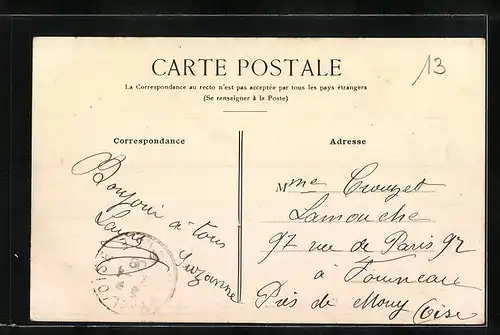 13
CARTE POSTALE
La Correspondance au recto n'est pas acceptée par tous les pays étrangers
(Se renseigner à la Poste)
Correspondance
Adresse
Bonjour à tous
Suzanne
Mme Crouzet
Lamouche
97 rue de Paris 97
à
Près de Mouy Oise